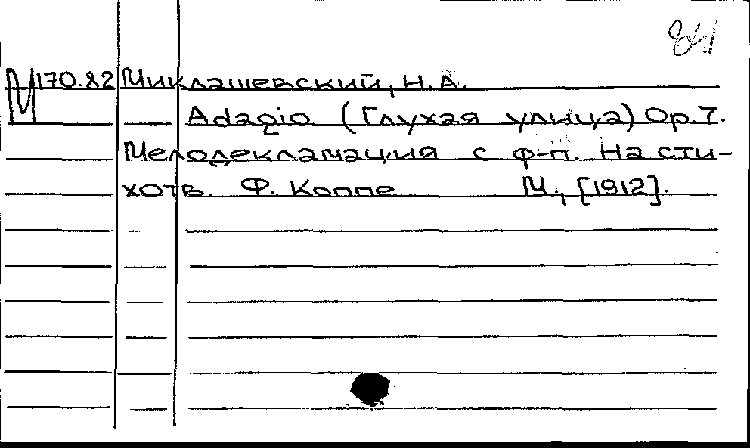 841
М170.82 Миклашевский, Н.А.
Adagio (Глухая улица) Ор.7.
Мелодекламация с ф-п. На сти-
хотв. Ф. Коппе М., [1912].